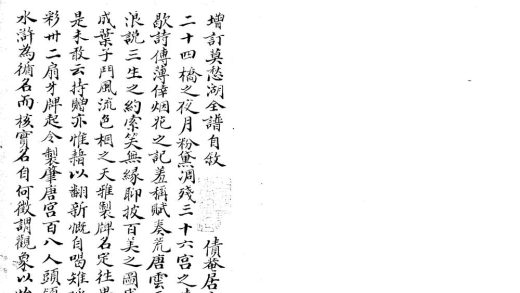 增訂莫愁湖全譜自敘　債菴居
二十四橋之夜月粉黛凋殘三十六宮之
歇詩傳薄倖烟花之記羞稱賦奏荒唐雲
浪說三生之約索笑無緣聊披百美之圖
成葉子鬥風流色相之天雅製牌名定社
是未敢云持贈亦惟藉以翻新慨自喝雉
彩卅二扇牙牌起令製肇唐宮百八人頭
水滸為循名而核實名自何徵謂觀象以